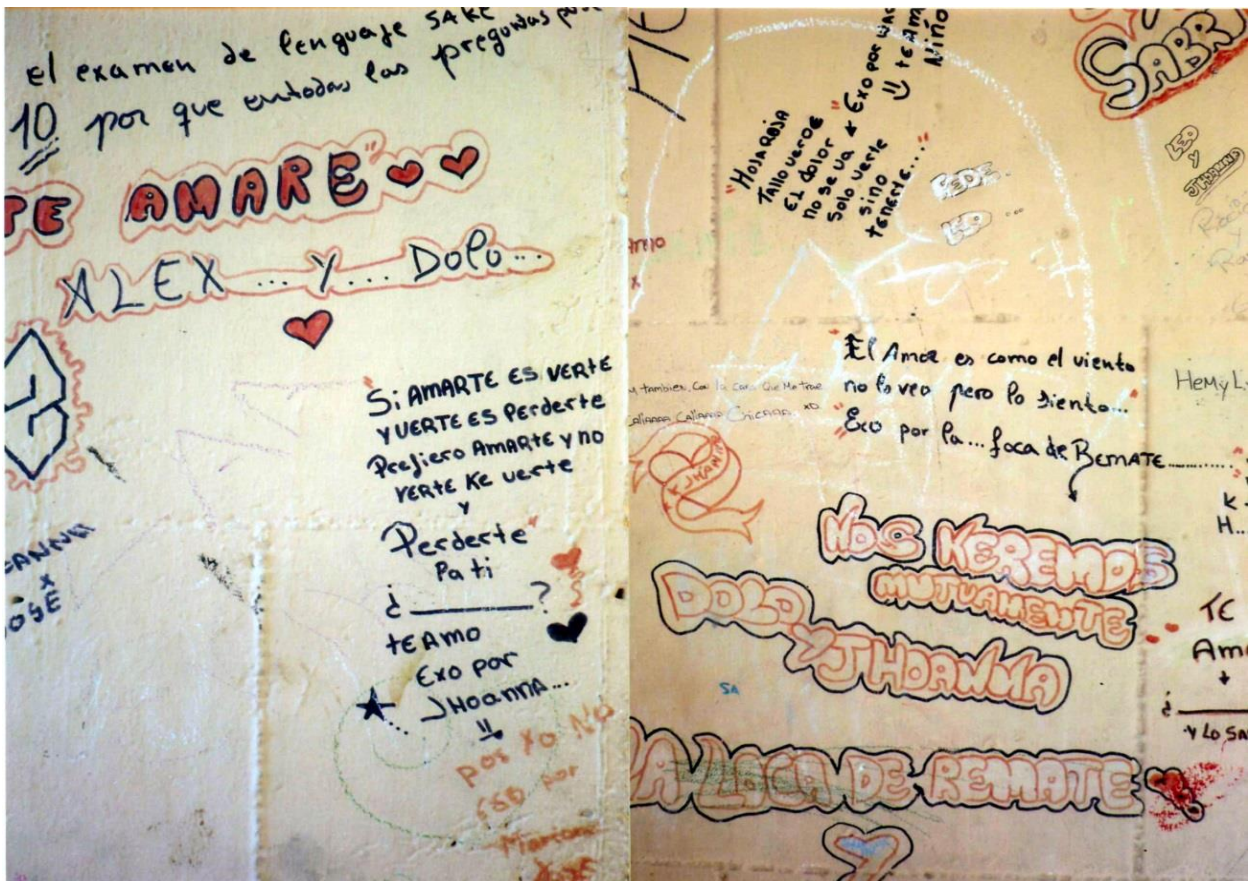 El examen de lenguaje SAKE
10 por que entodas las preguntas
TE AMARE
ALEX ... Y ... DOLO ...
"Si AMARTE ES VERTE
Y VERTE ES PERDERTE
Prefiero AMARTE y no
VERTE KE verte
y
Perderte"
Pa ti
¿ __________ ?
tE AMO
Exo por
JHOANNA...
por xo No
"HOJA ROJA
Tallo verde
EL dolor
no se va
solo verte
sino
tenerte...."
Exo por
tE AM
Niño
SABR
FEDE...
LEO
Y
JHOANNA
"El Amor es como el viento
no lo veo pero lo siento...
Exo por la ... loca de REMATE..........
HeMy L
también, Con la
JHOANNA
NOS KEREMOS
MUTUAMENTE
DOLO
Y JHOANNA
SA
LOCA DE REMATE
TE
AMO
+
¿ ______
Y LO SA
K
H...